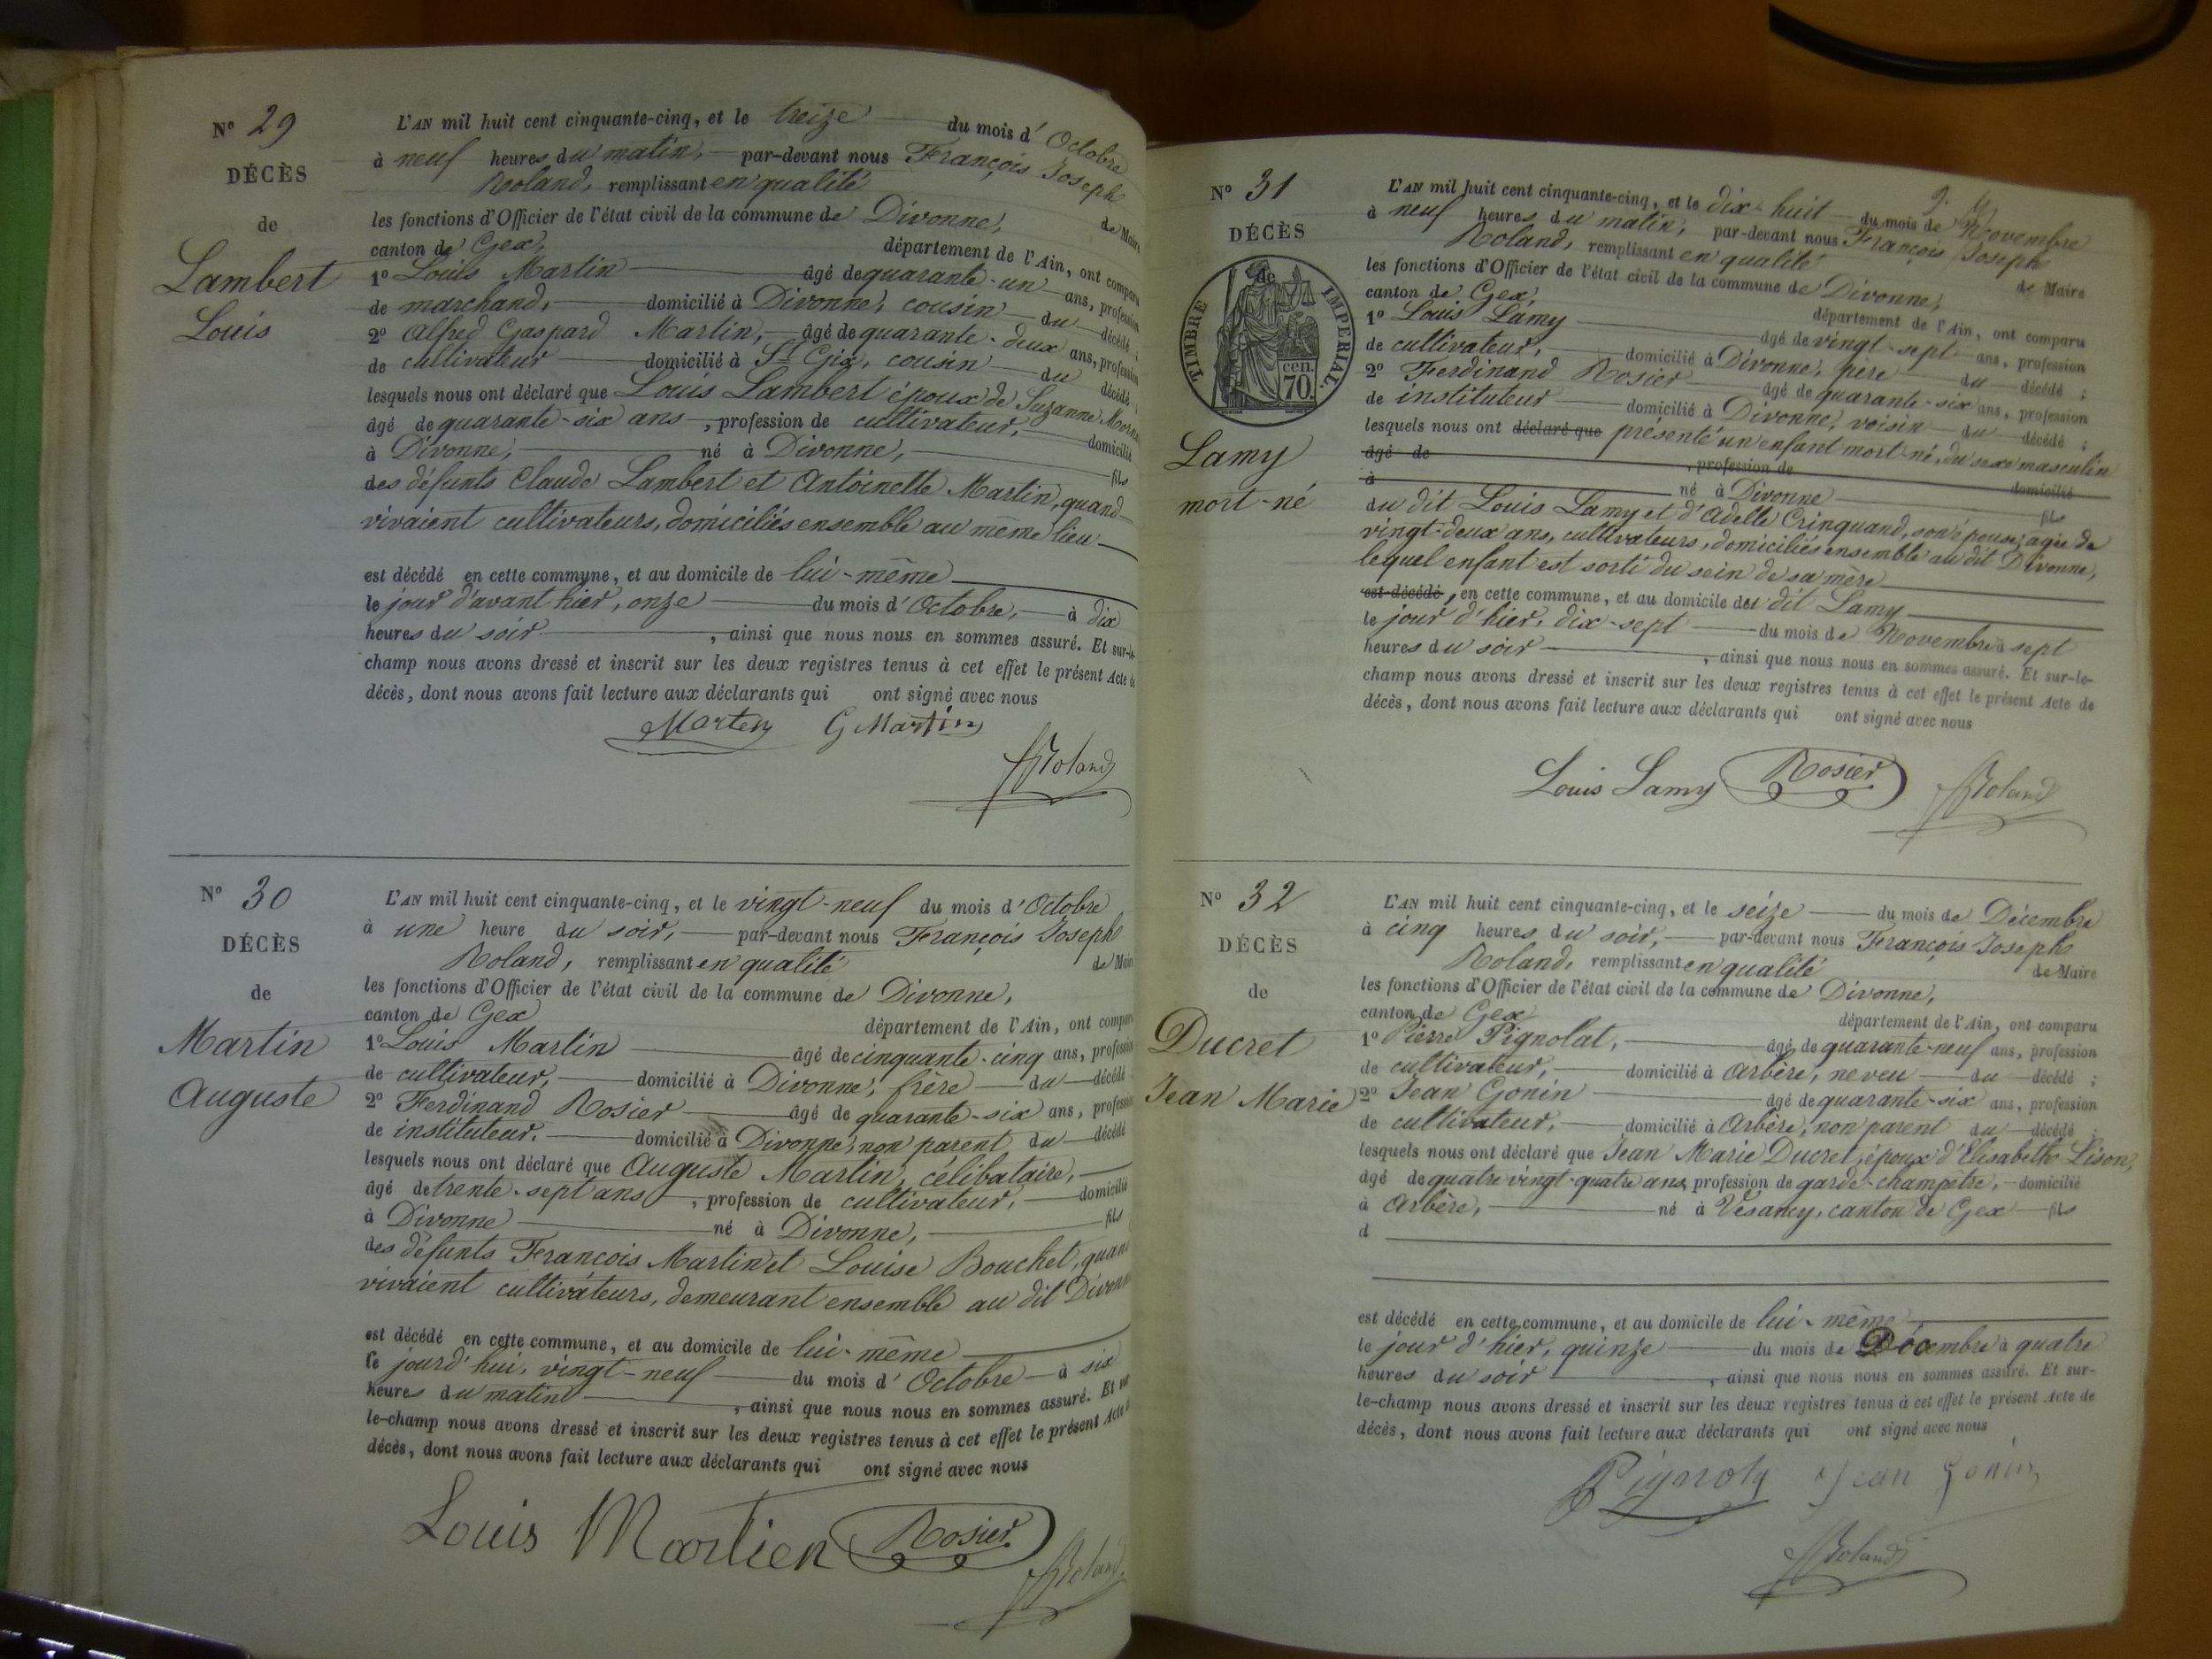 N° 29
DÉCÈS
de
Lambert
Louis
L'AN mil huit cent cinquante-cinq, et le treize du mois d'Octobre
à neuf heures du matin, par-devant nous François Joseph
Roland, remplissant en qualité de Maire
les fonctions d'Officier de l'état civil de la commune de Divonne,
canton de Gex, département de l'Ain, ont comparu
1° Louis Martin âgé de quarante-un ans, profession
de marchand, domicilié à Divonne, cousin du décédé ;
2° Alfred Gaspard Martin, âgé de quarante-deux ans, profession
de cultivateur domicilié à St Gix, cousin du décédé
lesquels nous ont déclaré que Louis Lambert époux de Suzanne
âgé de quarante-six ans, profession de cultivateur, domicilié
à Divonne, né à Divonne, fils
des défunts Claude Lambert et Antoinette Martin, quand
vivaient cultivateurs, domiciliés ensemble au même lieu
est décédé en cette commune, et au domicile de lui-même
le jour d'avant hier, onze du mois d'Octobre, à dix
heures du soir, ainsi que nous nous en sommes assuré. Et sur-le-
champ nous avons dressé et inscrit sur les deux registres tenus à cet effet le présent Acte de
décès, dont nous avons fait lecture aux déclarants qui ont signé avec nous
Marten G Martin
Roland
N° 30
DÉCÈS
de
Martin
Auguste
L'AN mil huit cent cinquante-cinq, et le vingt-neuf du mois d'Octobre
à une heure du soir, par-devant nous François Joseph
Roland, remplissant en qualité de Maire
les fonctions d'Officier de l'état civil de la commune de Divonne,
canton de Gex département de l'Ain, ont comparu
1° Louis Martin âgé de cinquante-cinq ans, profession
de cultivateur, domicilié à Divonne, frère du décédé
2° Ferdinand Rosier âgé de quarante-six ans, profession
de instituteur. domicilié à Divonne, non parent du décédé
lesquels nous ont déclaré que Auguste Martin, célibataire,
âgé de trente-sept ans, profession de cultivateur, domicilié
à Divonne né à Divonne, fils
des défunts François Martin et Louise Bouchet, quand
vivaient cultivateurs, demeurant ensemble au dit Divonne
est décédé en cette commune, et au domicile de lui-même
le jourd'hui, vingt-neuf du mois d'Octobre à six
heures du matin, ainsi que nous nous en sommes assuré. Et sur
le-champ nous avons dressé et inscrit sur les deux registres tenus à cet effet le présent Acte de
décès, dont nous avons fait lecture aux déclarants qui ont signé avec nous
Louis Martien Rosier
Roland
N° 31
DÉCÈS
de
TIMBRE IMPERIAL.
70. cen.
Lamy
mort-né
L'AN mil huit cent cinquante-cinq, et le dix-huit du mois de Novembre
à neuf heures du matin, par-devant nous François Joseph
Roland, remplissant en qualité de Maire
les fonctions d'Officier de l'état civil de la commune de Divonne,
canton de Gex, département de l'Ain, ont comparu
1° Louis Lamy âgé de vingt-sept ans, profession
de cultivateur, domicilié à Divonne, père du décédé ;
2° Ferdinand Rosier âgé de quarante-six ans, profession
de instituteur domicilié à Divonne, voisin du décédé ;
lesquels nous ont déclaré que présenté un enfant mort-né, du sexe masculin
âgé de , profession de domicilié
à né à Divonne fils
du dit Louis Lamy et d'Adelle Crinquand, son épouse, agée de
vingt-deux ans, cultivateurs, domiciliés ensemble au dit Divonne,
lequel enfant est sorti du sein de sa mère
est décédé, en cette commune, et au domicile du dit Lamy
le jour d'hier, dix-sept du mois de Novembre à sept
heures du soir, ainsi que nous nous en sommes assuré. Et sur-le-
champ nous avons dressé et inscrit sur les deux registres tenus à cet effet le présent Acte de
décès, dont nous avons fait lecture aux déclarants qui ont signé avec nous
Louis Lamy Rosier Roland
N° 32
DÉCÈS
de
Ducret
Jean Marie
L'AN mil huit cent cinquante-cinq, et le seize du mois de Décembre
à cinq heures du soir, par-devant nous François Joseph
Roland, remplissant en qualité de Maire
les fonctions d'Officier de l'état civil de la commune de Divonne,
canton de Gex département de l'Ain, ont comparu
1° Pierre Pignolat, âgé de quarante-neuf ans, profession
de cultivateur, domicilié à Arbère, neveu du décédé ;
2° Jean Gonin âgé de quarante-six ans, profession
de cultivateur, domicilié à Arbère, non parent du décédé ;
lesquels nous ont déclaré que Jean Marie Ducret, époux d'Elisabeth Lison,
âgé de quatre vingt-quatre ans, profession de garde-champêtre, domicilié
à Arbère, né à Vésancy, canton de Gex fils
d
est décédé en cette commune, et au domicile de lui-même
le jour d'hier, quinze du mois de Décembre à quatre
heures du soir, ainsi que nous nous en sommes assuré. Et sur-
le-champ nous avons dressé et inscrit sur les deux registres tenus à cet effet le présent Acte de
décès, dont nous avons fait lecture aux déclarants qui ont signé avec nous
Jean Gonin
Roland